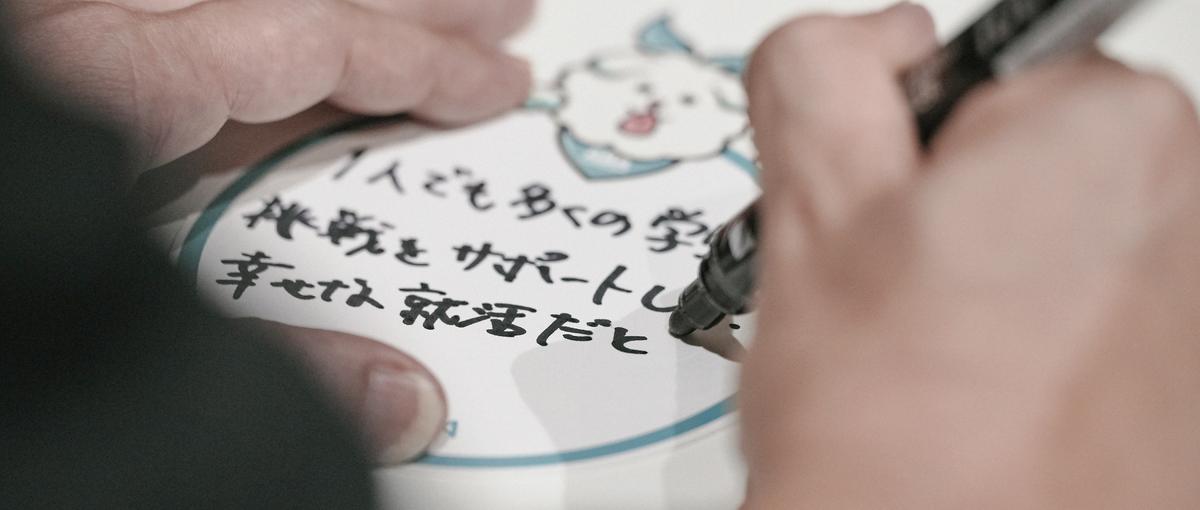 1人でも多くの学
挑戦をサポートし
幸せな就活だと